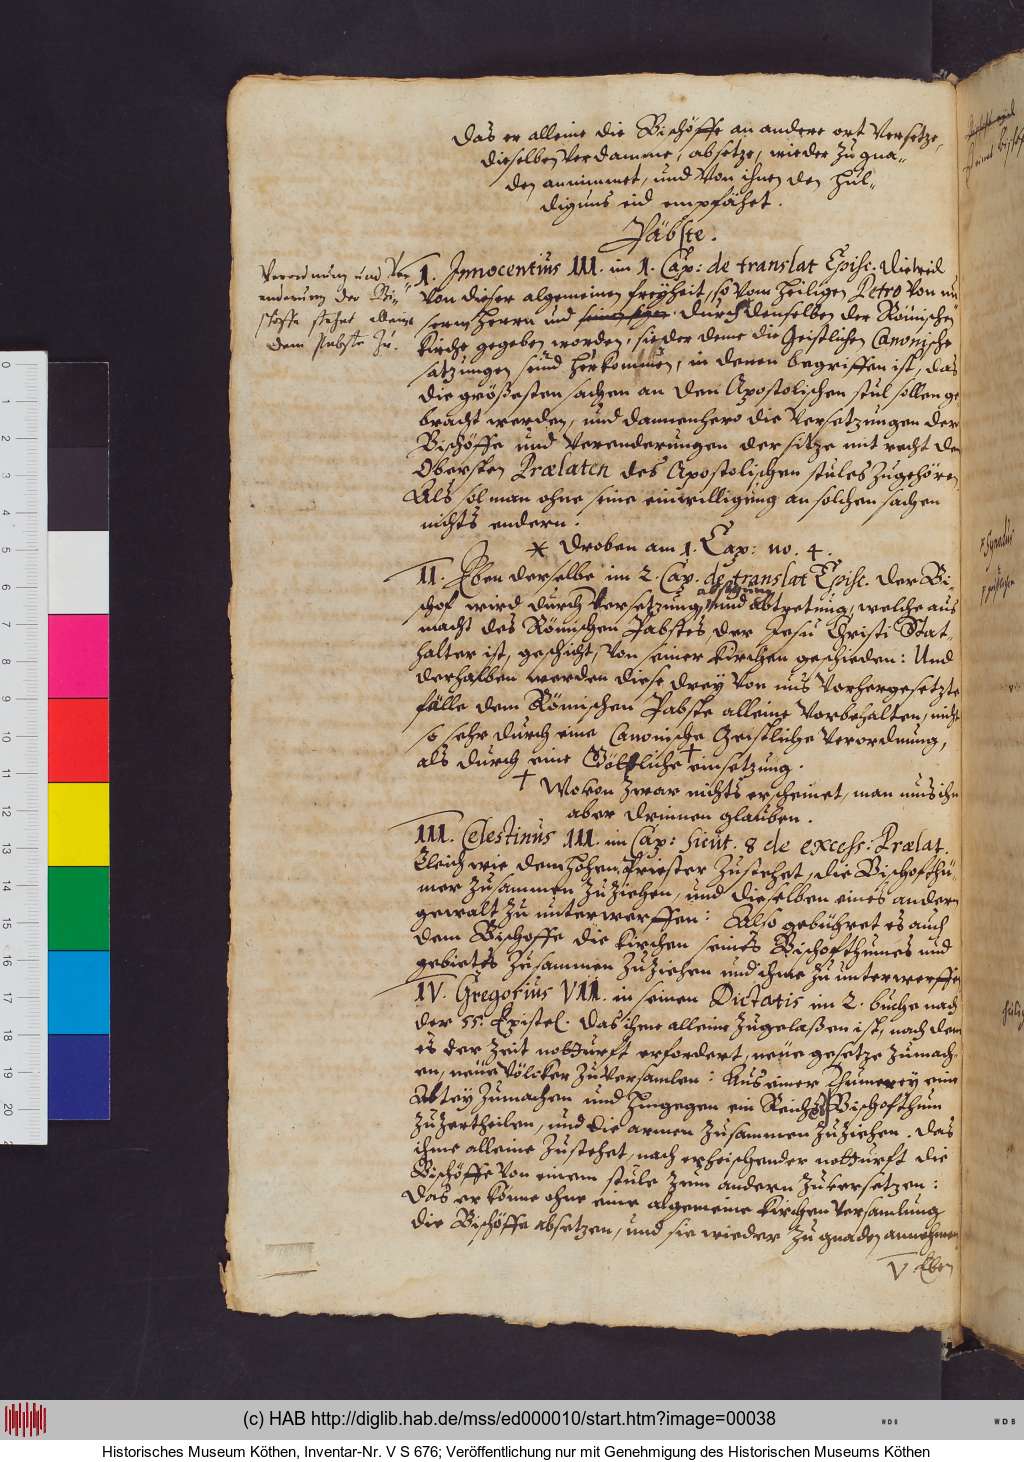 das er alleine die Bischöffe an andere ort versetze,
dieselben verdamme, absetze, wieder zu gna=
den annimmet, und von ihnen den Hul=
digungs eid empfähet.
Päbste.
Verordnung und Ver
enderung der Bi=
schoffe stehet alleine
dem Pabste zu.
I. Innocentius III. im 1. Cap: de translat Episc. Dieweil
von dieser algemeinen freyheit, so vom heiligen Petro von un
serm Herrn und durch denselben der Römischen
Kirche gegeben worden, sieder deme die Geistlichen Canonische
satzungen seind herkommen, in denen begriffen ist, das
die größesten sachen an den Apostolischen stul sollen ge
bracht werden, und dannenhero die versetzungen der
Bischöffe und verenderungen der sitze mit recht dem
Obersten Prælaten des Apostolischen stules zugehören,
Als sol man ohne seine einwilligung an solchen sachen
nichts endern.
* droben am 1. Cap: no. 4.
II. Eben derselbe im 2. Cap. de translat Episc. Der Bi=
absetzung
schof wird durch versetzung, und abtretung, welche aus
macht des Römischen Pabstes, der Jesu Christi Stat=
halter ist, geschicht, von seiner kirchen geschieden: Und
derhalben werden diese drey von uns vorhergesetzte
fälle dem Römischen Pabste alleine vorbehalten, nicht
so sehr durch eine Canonische Geistliche verordnung,
als durch eine Göttliche † einsetzung.
† Wovon zwar nichts erscheinet, man mus ihn
aber drinnen glauben.
III. Celestinus III. im Cap: sicut. 8 de excess: Prælat.
Gleich wie dem hohen Priester zustehet, die Bischofthü=
mer zusammen zu ziehen, und dieselben eines andern
gewalt zu unterwerffen: Also gebühret es auch
dem Bischoffe die kirchen seines Bischofthumes und
gebietes zusammen zu ziehen und ihme zu unterwerffen
IV. Gregorius VII. in seinen Dictatis im 2. buche nach
der 55. Epistel. Das ihme alleine zugelaßen ist, nach dem
es der Zeit notturft erfordert, neüe gesetze zumach=
en, neüe Völcker zu versamlen: Aus einer Thumerey eine
Abtey zumachen und hingegen ein Reiches Bischofthum
zu zertheilen, und die armen zusammen zu ziehen. Das
ihme alleine zustehet, nach erheischender notturft die
Bischöffe von einem stule zum andern zu versetzen:
Das er könne ohne eine algemeine kirchen versamlung
die Bischöffe absetzen, und sie wieder zu gnaden annehmen
V. Eben
(c) HAB http://diglib.hab.de/mss/ed000010/start.htm?image=00038
Historisches Museum Köthen, Inventar-Nr. V S 676; Veröffentlichung nur mit Genehmigung des Historischen Museums Köthen